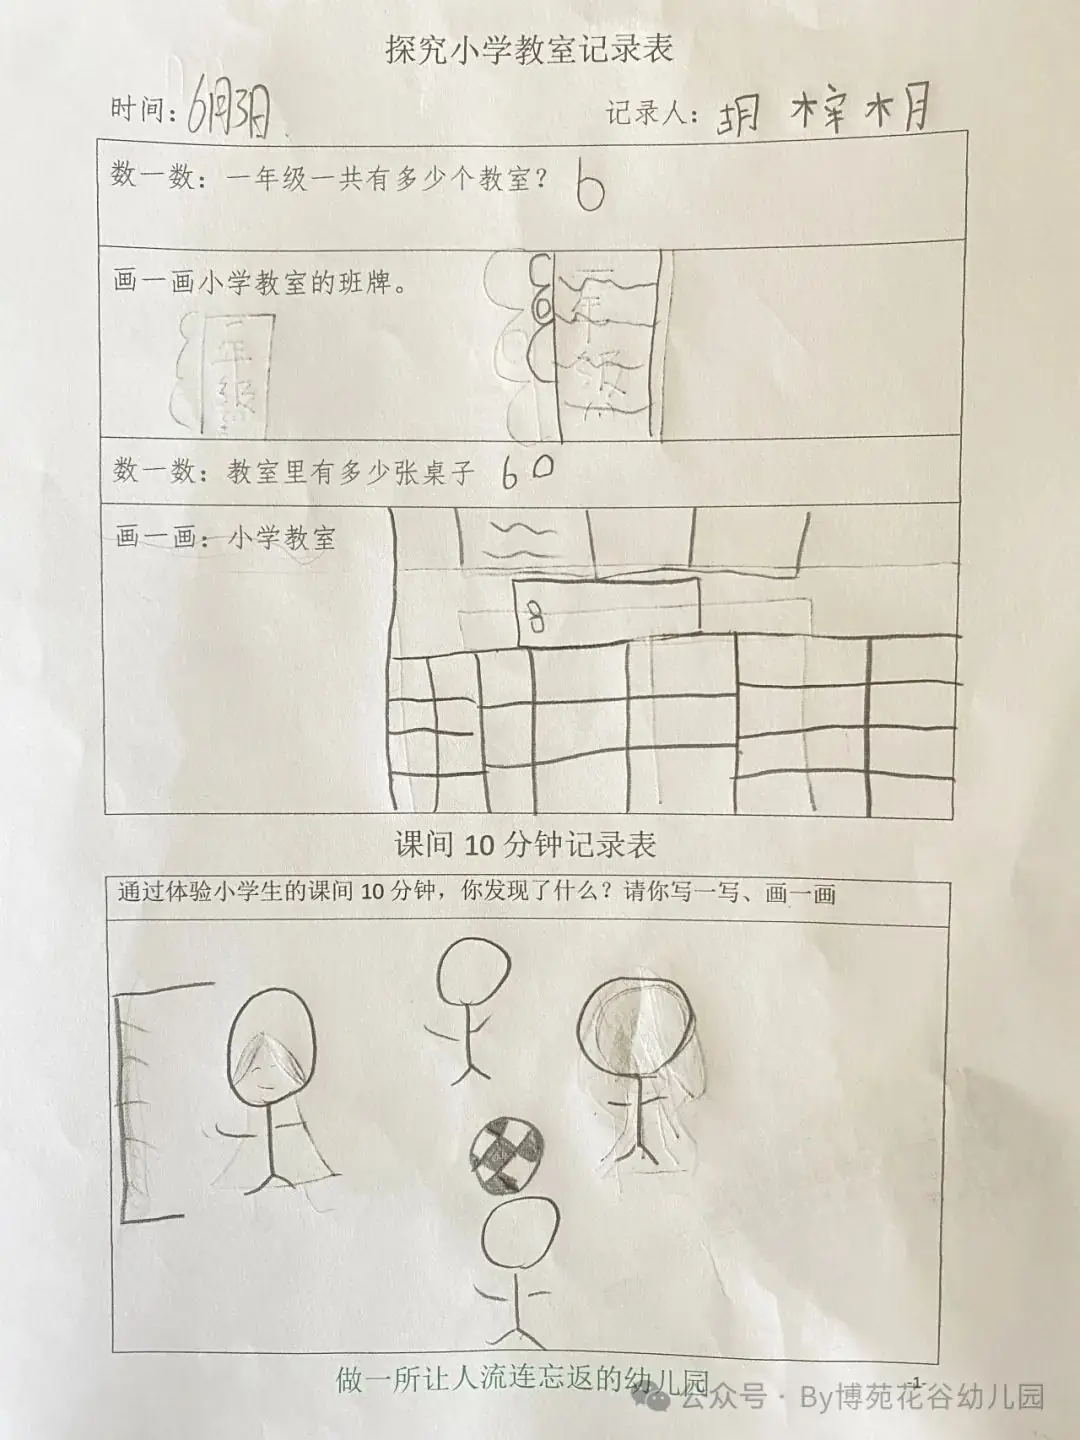 探究小学教室记录表
时间：6月3日
记录人：胡 梓 木月
数一数：一年级一共有多少个教室？ 6
画一画小学教室的班牌。
二年级
一年级
数一数：教室里有多少张桌子 60
画一画：小学教室
8
课间 10 分钟记录表
通过体验小学生的课间 10 分钟，你发现了什么？请你写一写、画一画
做一所让人流连忘返的幼儿园
-1-
公众号 · By博苑花谷幼儿园